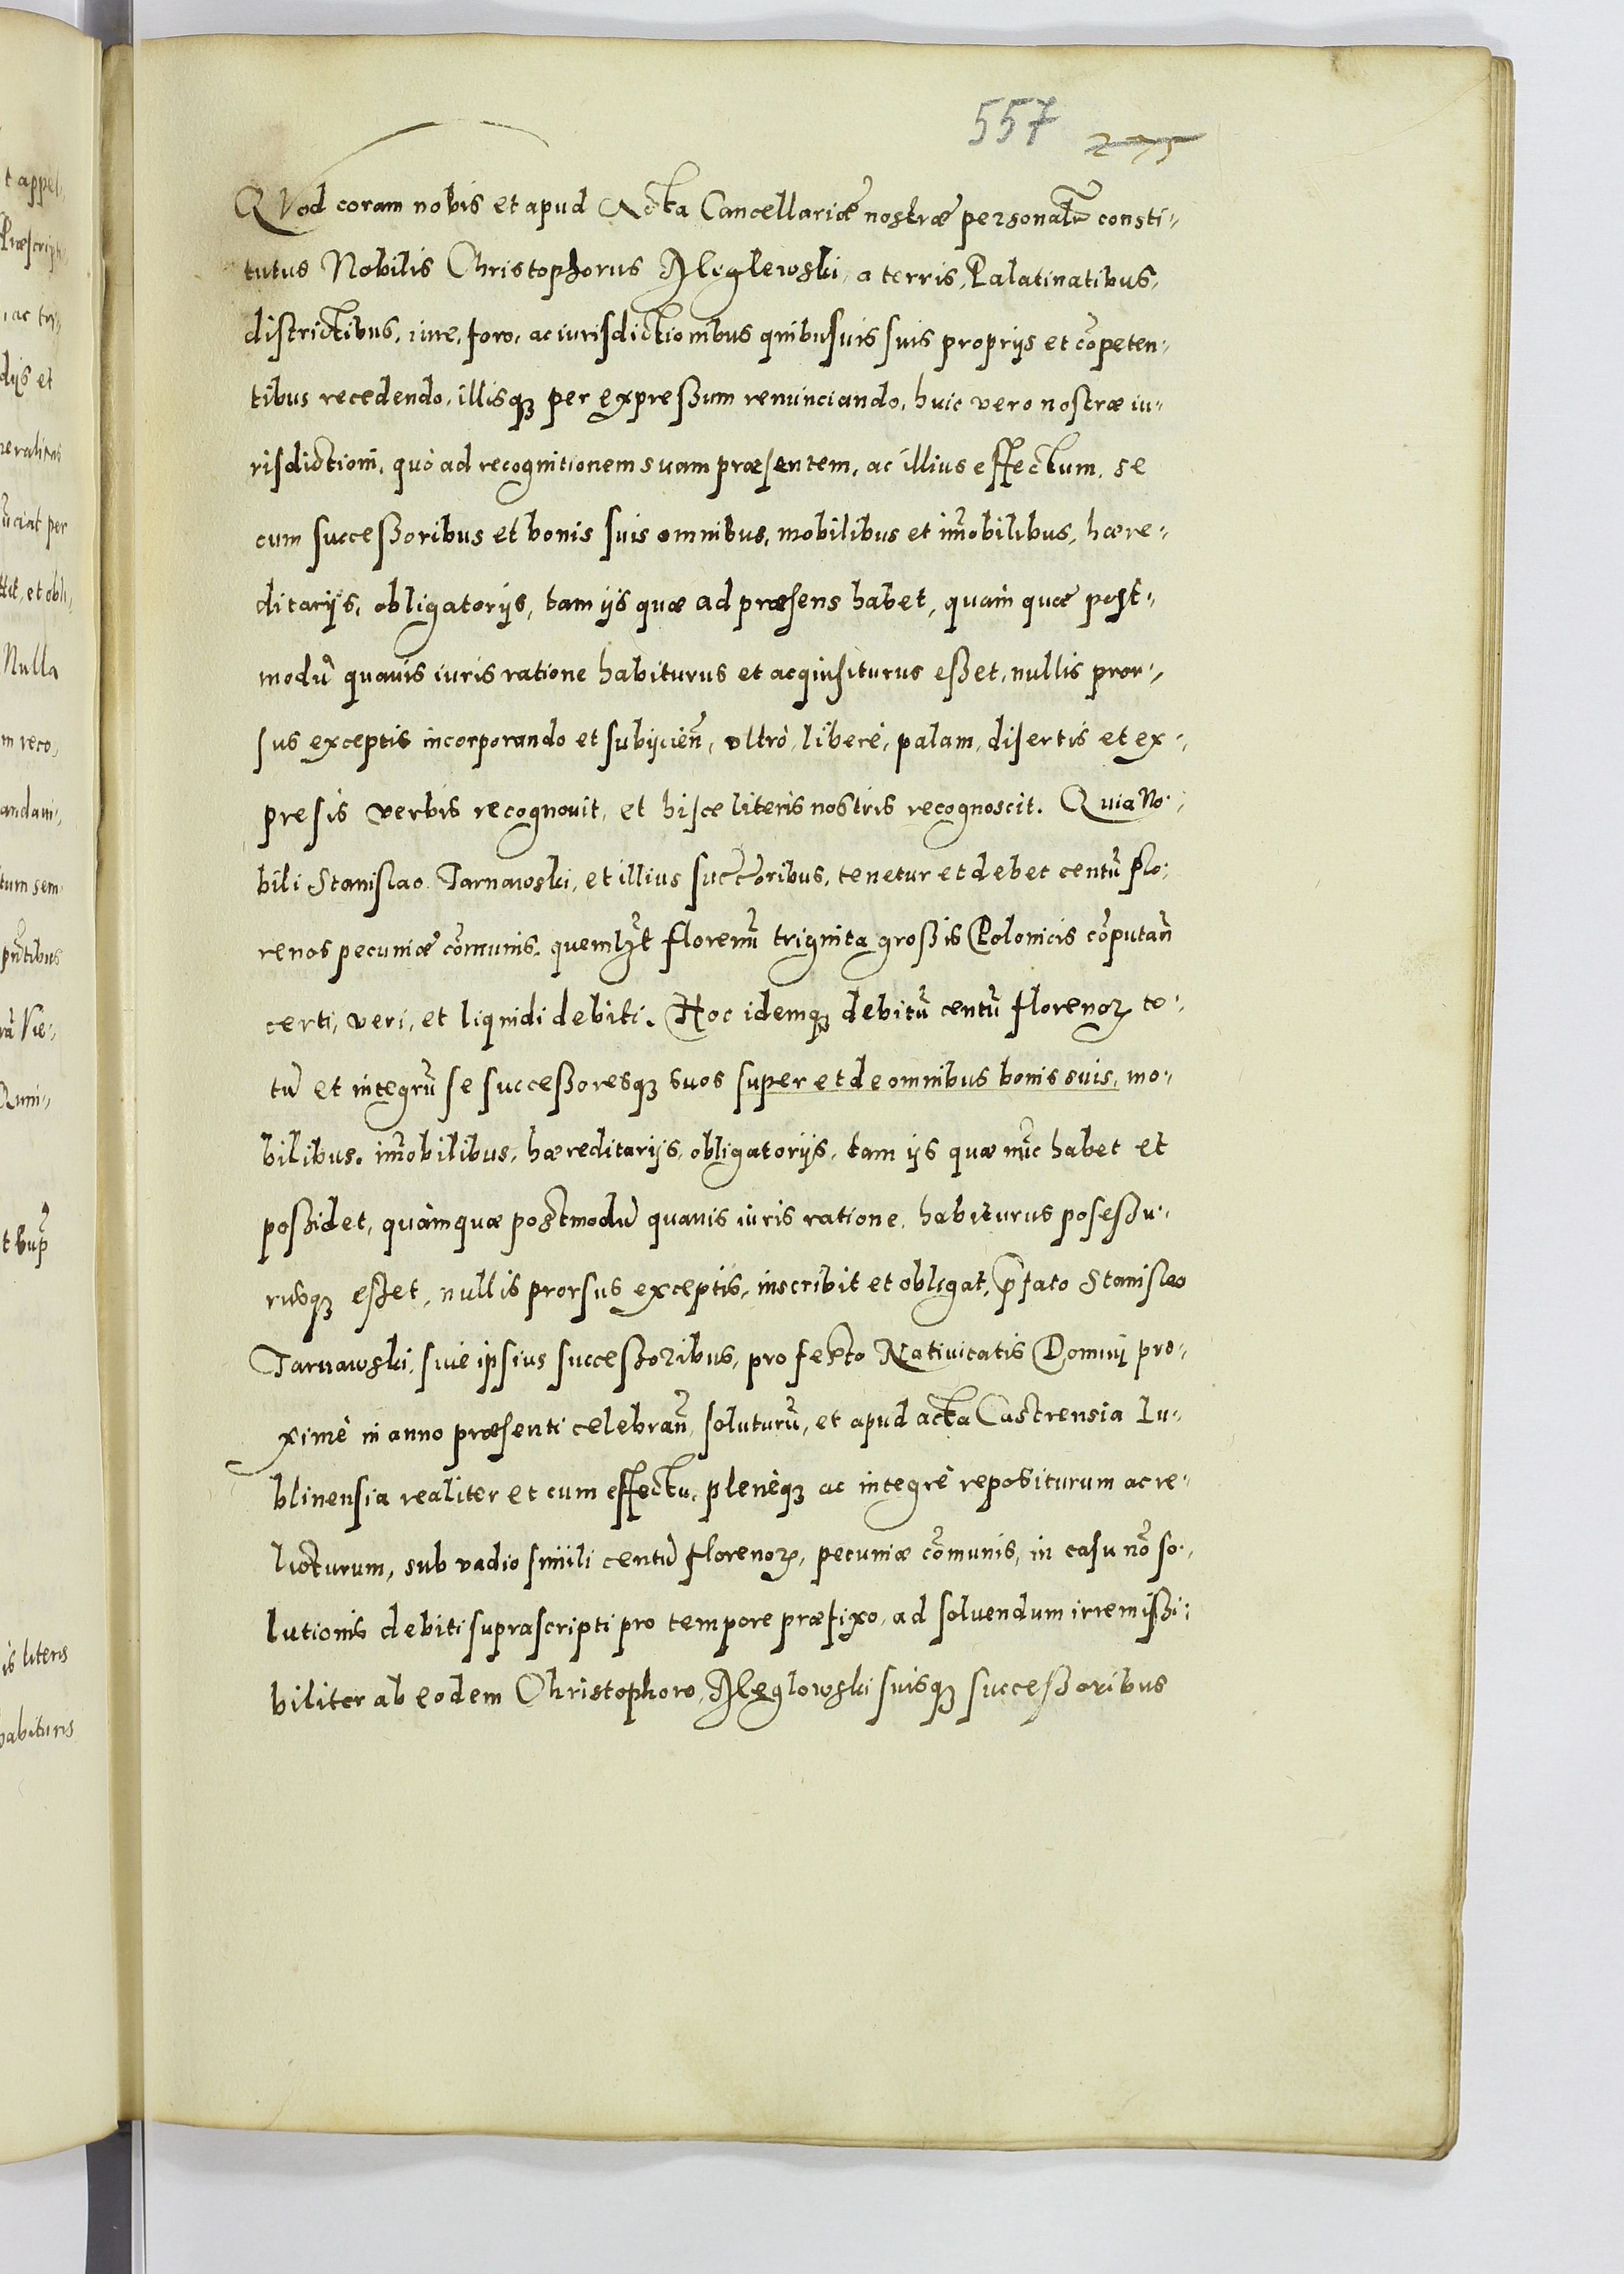 557 275
QVod coram nobis et apud Acta Cancellariæ nostræ personalr̃ consti-
tutus Nobilis Christophorus Alęglewski, a terris, Palatinatibus,
districtibus, iure, foro, ac iurisdictionibus quibusuis suis proprijs et cõpeten-
tibus recedendo, illisq₃ per expreßum renunciando, huic vero nostræ iu-
risdictioni, quò ad recognitionem suam præsentem, ac illius effectum, se
cum succeßoribus et bonis suis omnibus, mobilibus et im̃obilibus, hære-
ditarijs, obligatorijs, tam ijs quæ ad præsens habet, quàm quæ post-
modũ quauis iuris ratione habiturus et acquisiturus eßet, nullis pror-
sus exceptis incorporando et subijcien̄, vltrò, liberè, palam, disertis et ex-
presis verbis recognouit, et hisce literis nostris recognoscit. Quia No-
bili Stanislao Tarnawski, et illius succ̃oribus, tenetur et debet centũ flo-
renos pecuniæ com̃unis, quemlȝt florenũ trignita großis Polonicis cõputan̄
certi, veri, et liquidi debiti. Hoc idemq₃ debitũ centũ florenoꝝ to-
tũ et integrũ se succeßoresq₃ suos super et de omnibus bonis suis, mo-
bilibus, im̃obilibus, hæreditarijs, obligatorijs, tam ijs quæ nũc habet et
poßidet, quàm quæ postmodũ quauis iuris ratione habiturus poseßu-
rusq₃ eßet, nullis prorsus exceptis, inscribit et obligat, p̃fato Stanislao
Tarnawski, siue ipsius succeßoribus, pro festo Natiuitatis Domini pro-
ximè in anno præsenti celebran̄, soluturũ, et apud acta Castrensia Lu-
blinensia realiter et cum effectu, plenèq₃ ac integrè repositurum ac re-
licturum, sub vadio simili centũ florenoꝝ, pecuniæ com̃unis, in casu nõ so-
lutionis debiti suprascripti pro tempore præfixo, ad soluendum irremißi-
biliter ab eodem Christophoro Alęglowski suisq₃ succeßoribus